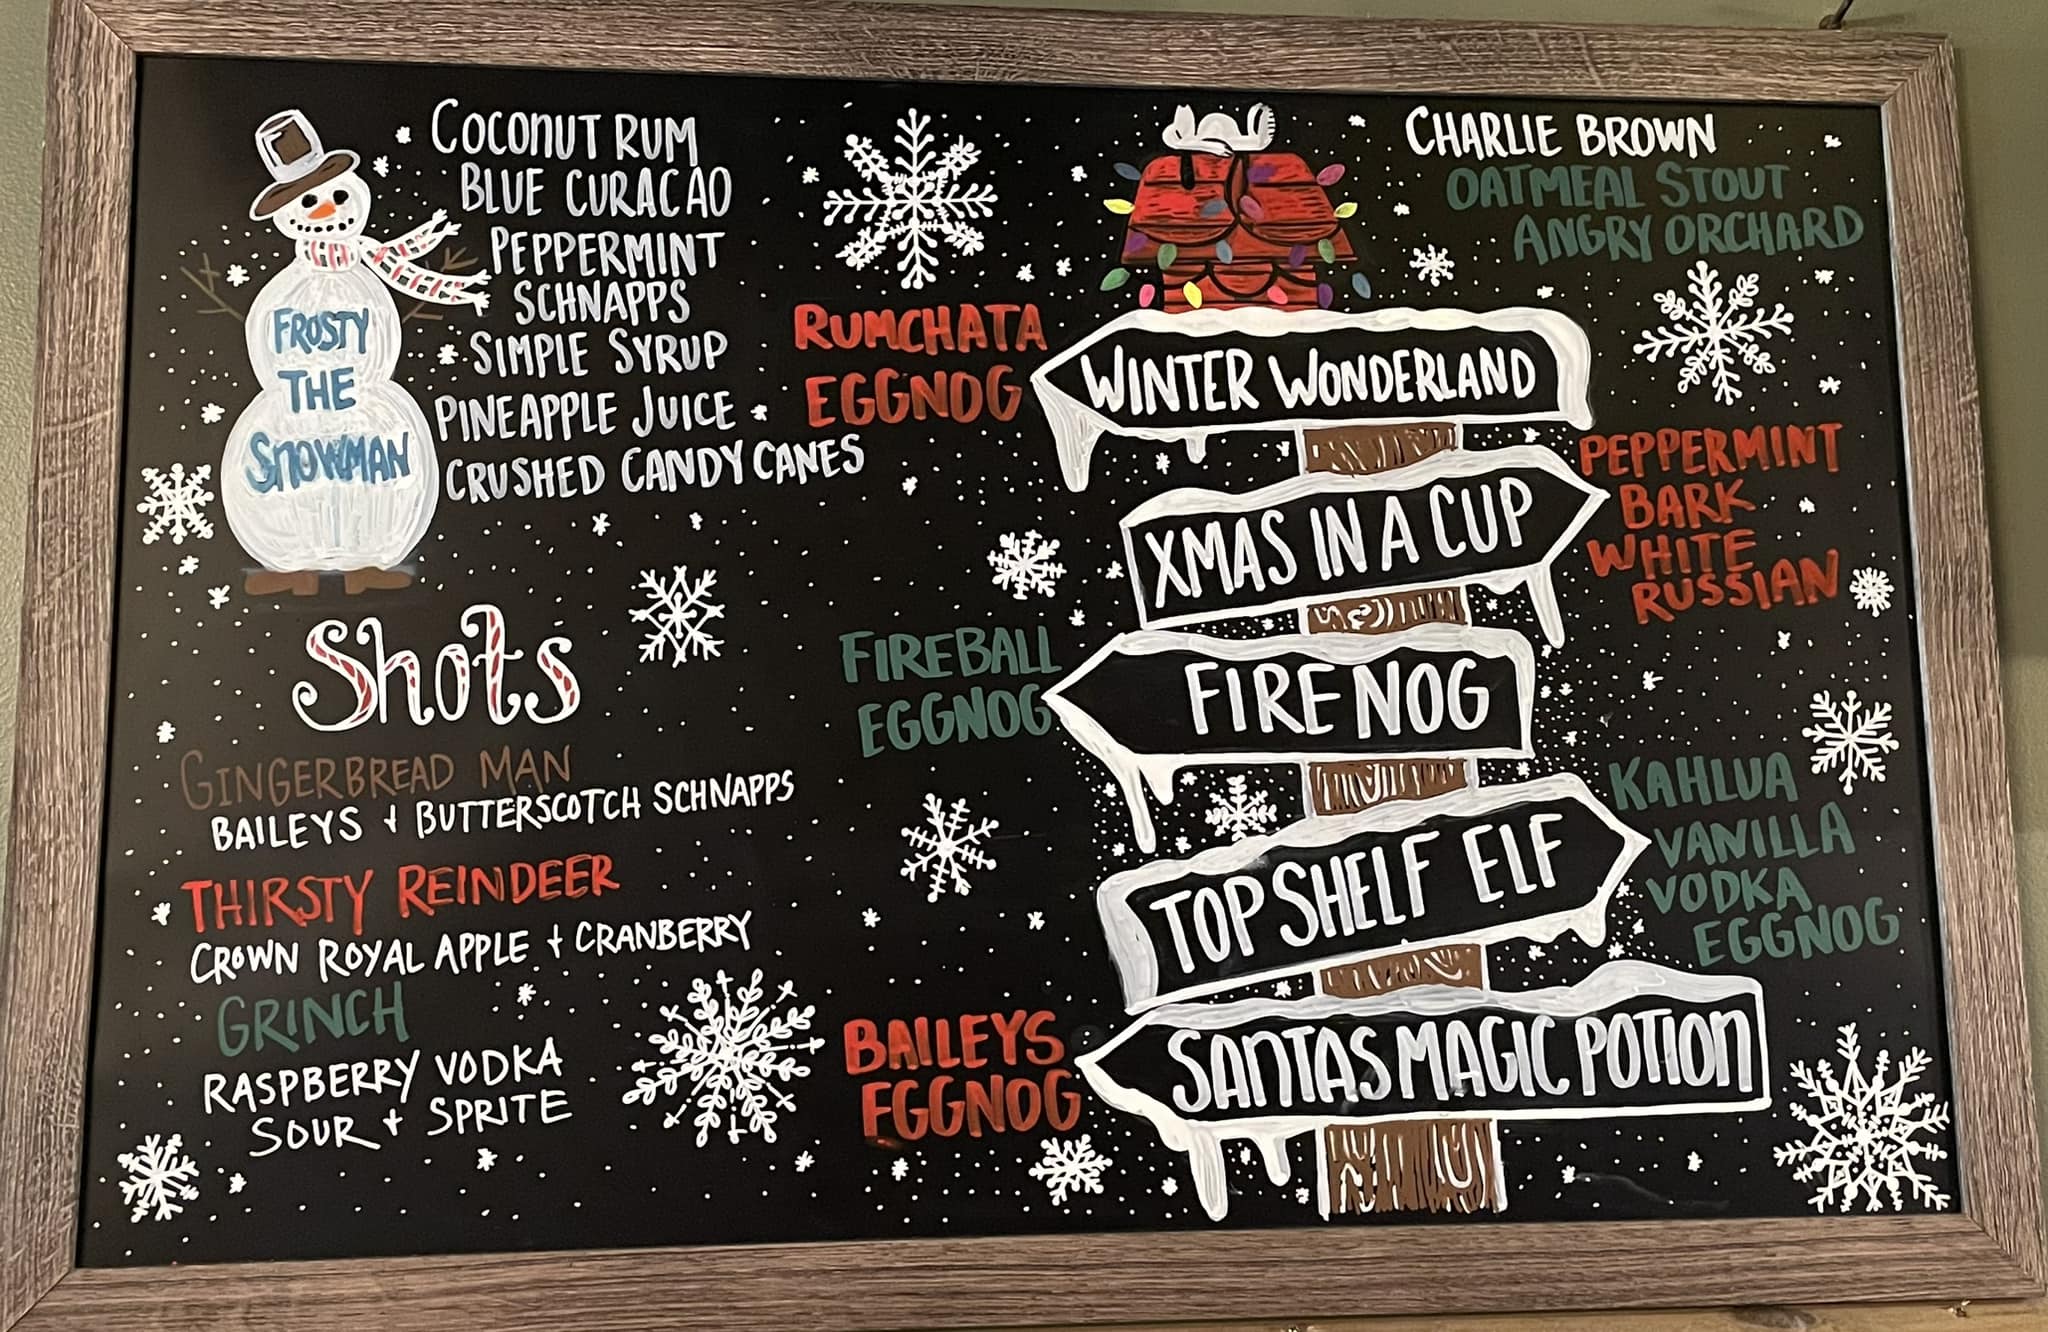 FROSTY
THE
SNOWMAN
COCONUT RUM
BLUE CURACAO
PEPPERMINT
SCHNAPPS
SIMPLE SYRUP
PINEAPPLE JUICE
CRUSHED CANDY CANES
Shots
GINGERBREAD MAN
BAILEYS + BUTTERSCOTCH SCHNAPPS
THIRSTY REINDEER
CROWN ROYAL APPLE + CRANBERRY
GRINCH
RASPBERRY VODKA
SOUR + SPRITE
CHARLIE BROWN
OATMEAL STOUT
ANGRY ORCHARD
WINTER WONDERLAND
RUMCHATA
EGGNOG
XMAS IN A CUP
PEPPERMINT
BARK
WHITE
RUSSIAN
FIRE NOG
FIREBALL
EGGNOG
TOP SHELF ELF
KAHLUA
VANILLA
VODKA
EGGNOG
SANTAS MAGIC POTION
BAILEYS
EGGNOG